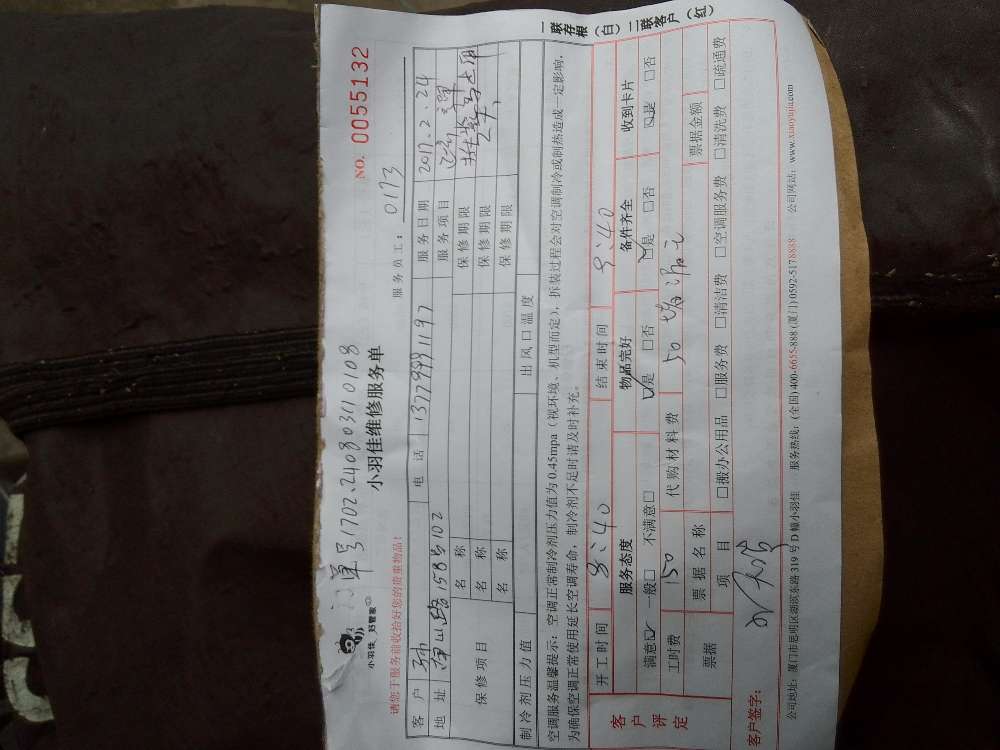 订单号1702240803110108
小羽佳 好管家
小羽佳维修服务单
NO. 0055132
请您于服务前收拾好您的贵重物品！
服务员工：0173
客户 电话 13779991197 服务日期 2017.2.24
地址 158号102 服务项目
保修项目
名称 保修期限
名称 保修期限
名称 保修期限
制冷剂压力值 出风口温度
空调服务温馨提示：空调正常制冷剂压力值为0.45mpa（视环境、机型而定），拆装过程会对空调制冷或制热造成一定影响，
为确保空调正常使用延长空调寿命，制冷剂不足时请及时补充。
一联存根（白） 二联客户（红）
客户评定
开工时间 8:40 结束时间 9:40
服务态度 物品完好 备件齐全 收到卡片
满意☑ 一般□ 不满意□ ☑是 □否 ☑是 □否 ☑是 □否
工时费 150 代购材料费 50
票据 票据名称 票据金额
项目 □搬办公用品 □服务费 □清洁费 □空调服务费 □清洗费 □疏通费
客户签字：
公司地址：厦门市思明区湖滨东路319号D幢小羽佳 服务热线：(全国)400-6655-888 (厦门)0592-5178888 公司网站：www.xiaoyujia.com